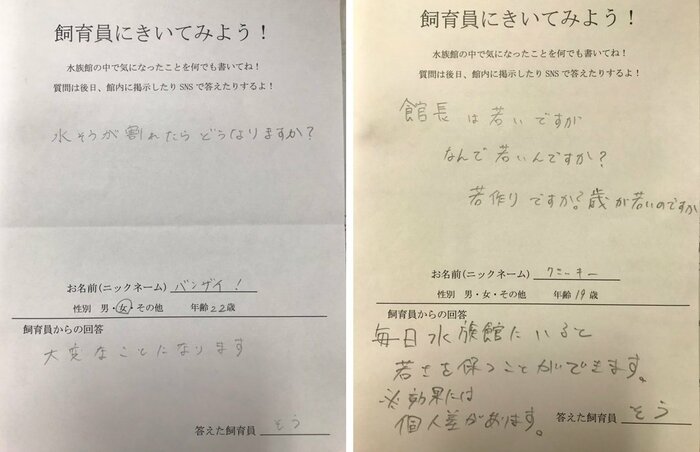 飼育員にきいてみよう！
水族館の中で気になったことを何でも書いてね！
質問は後日、館内に掲示したり SNS で答えたりするよ！
水そうが割れたらどうなりますか？
お名前(ニックネーム) バンザイ！
性別 男・女・その他 年齢 22 歳
飼育員からの回答
大変なことになります
答えた飼育員 そう
飼育員にきいてみよう！
水族館の中で気になったことを何でも書いてね！
質問は後日、館内に掲示したり SNS で答えたりするよ！
館長は若いですが
なんで若いんですか？
若作りですか？歳が若いのですか
お名前(ニックネーム) クニーキー
性別 男・女・その他 年齢 19 歳
飼育員からの回答
毎日水族館にいると
若さを保つことができます。
※効果には
個人差があります。
答えた飼育員 そう